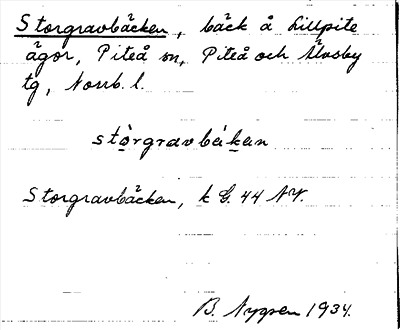 Storgravbäcken, bäck å Lillpite
ägor, Piteå sn, Piteå och Älvsby
tg, Norrb. l.
stòrgravbäkan
Storgravbäcken, k G. 44 NV.
B. Nygren 1934.